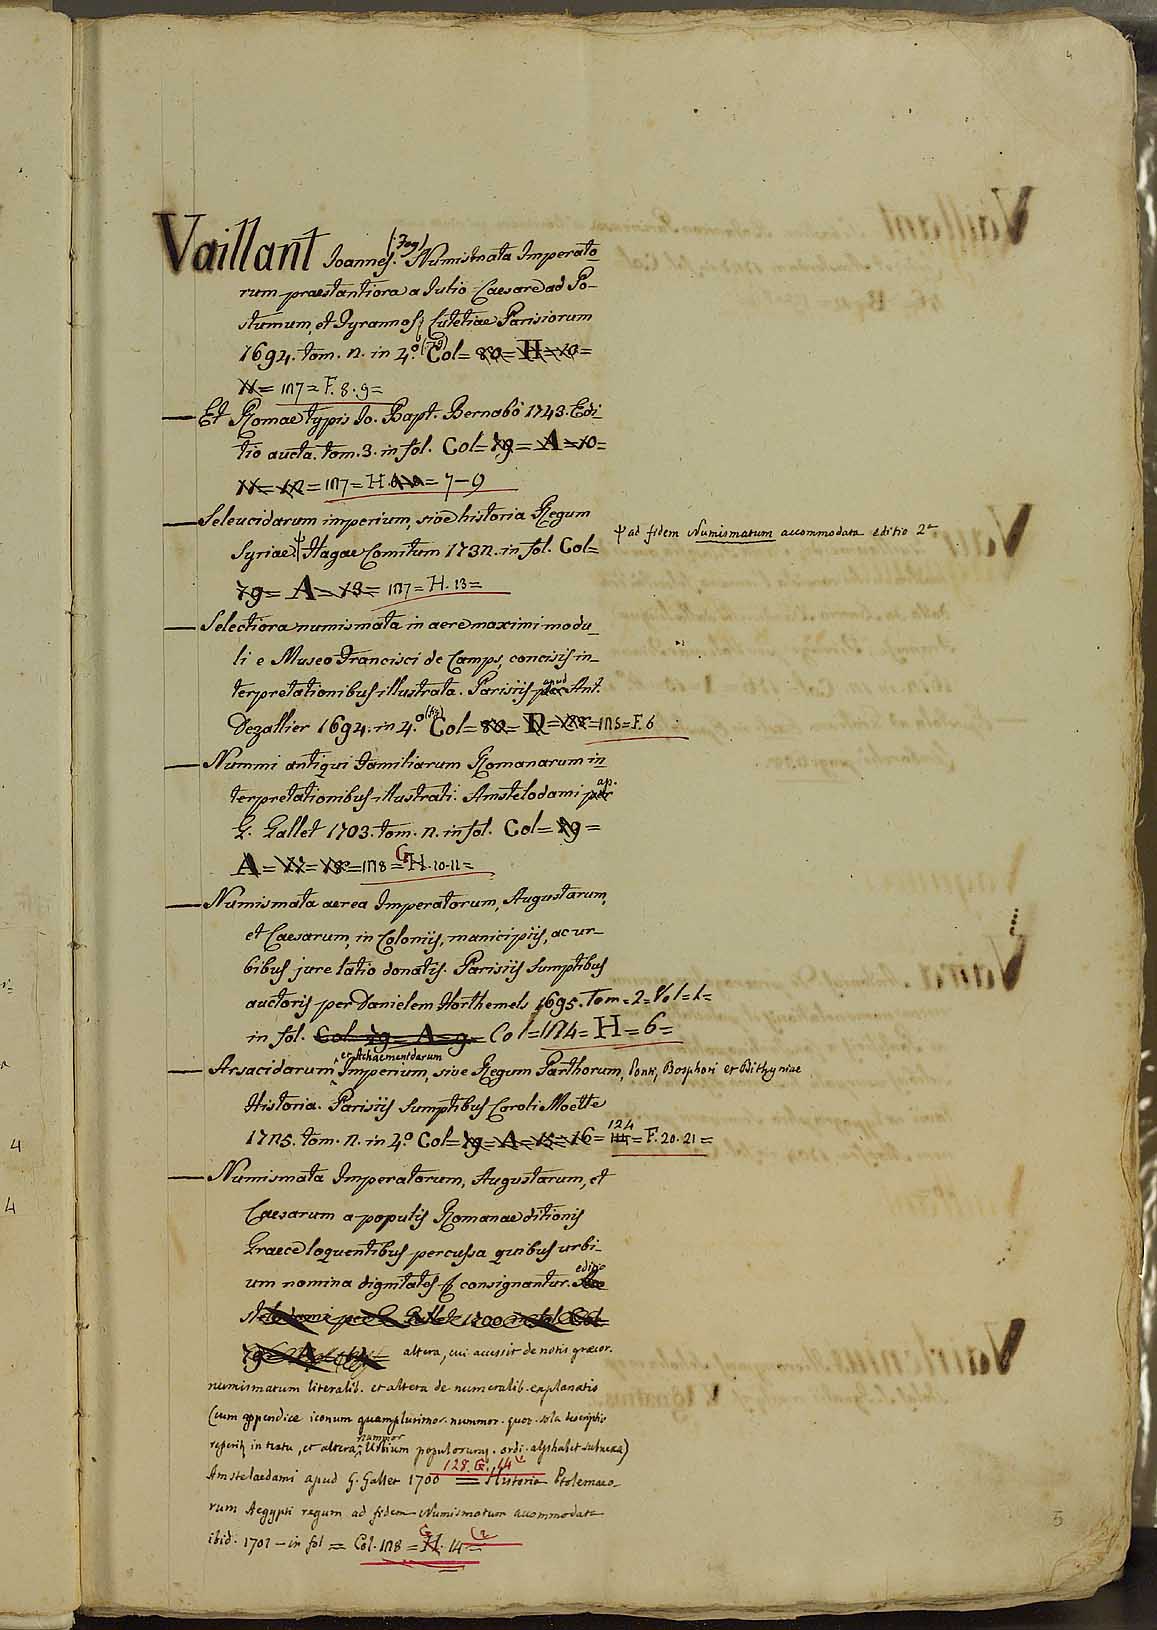 4
Vaillant Joannes. (Foy) Numismata Imperato-
rum praestantiora a Julio Caesare ad Po-
stumum, et Tyrannos; Lutetiae Parisiorum
1694. tom. 2. in 4.º Col= 80= H= 10=
11= 127= F. 8. 9=
— Et Romae typis Jo. Bapt. Bernabò 1743. Edi-
tio aucta. tom. 3. in fol. Col= 19= A= 10=
11= 12= 127= H. 7-9
— Seleucidarum imperium, sive historia Regum
Syriae ψ Hagae Comitum 1732. in fol. Col=
ψ ad fidem Numismatum accommodata editio 2ª
19= A= 13= 127= H. 13=
— Selectiora numismata in aere maximi modu-
li e Museo Francisci de Camps, concisis in-
terpretationibus illustrata. Parisiis apud Ant.
Dezallier 1694. in 4.º Col= 80= D= 125= F. 6
— Nummi antiqui Familiarum Romanarum in
terpretationibus illustrati. Amstelodami per ap.
G. Gallet 1703. tom. 2. in fol. Col= 19=
A= 11= 128= G H. 10-11=
— Numismata aerea Imperatorum, Augustarum,
et Caesarum, in Coloniis, municipiis, ac ur-
bibus jure latio donatis. Parisiis sumptibus
auctoris per Danielem Horthemels 1695. Tom=2=Vol=1=
in fol. Col= 19= A= 9= Col=124= H= 6=
— Arsacidarum et Achaemenidarum Imperium, sive Regum Parthorum, Ponti, Bosphori et Bithyniae
Historia. Parisiis sumptibus Caroli Moette
1725. tom. 2. in 4.º Col= 19= A= 15= 16= 124= F. 20. 21=
— Numismata Imperatorum, Augustarum, et
Caesarum a populis Romanae ditionis
Graece loquentibus percussa quibus urbi-
um nomina dignitates &c consignantur. editio
stelodami per G. Gallet 1700 in fol. Col=
19= A= altera, cui accessit de notis graecor.
numismatum literalib. et altera de numeralib. explanatio
(cum appendice iconum quamplurimor. nummor. quor. sola descriptio
reperitur in textu, et altera nummor Urbium populorumq. ordi. alphabet subnexa)
Amstelaedami apud G. Gallet 1700 128. G. 14 (1 = Historia Ptolemaeo-
rum Aegypti regum ad fidem Numismatum accommodata
ibid. 1701 - in fol = Col. 128 = G H. 14 (2 =
5